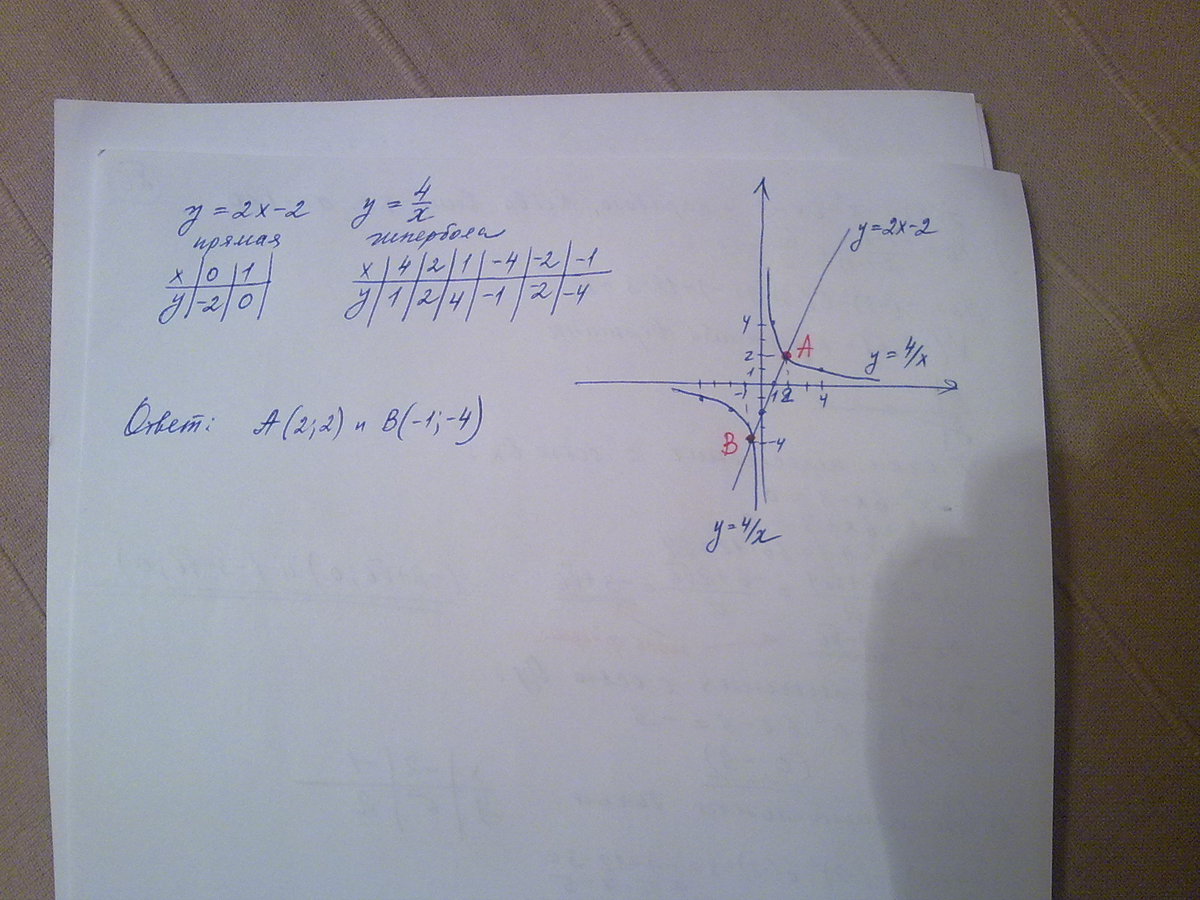 y = 2x-2
прямая
x | 0 | 1
y | -2 | 0
y = 4/x
гипербола
x | 4 | 2 | 1 | -4 | -2 | -1
y | 1 | 2 | 4 | -1 | -2 | -4
Ответ: A(2;2) и B(-1;-4)
y=2x-2
4
2
A
1
y = 4/x
-1
1 2
4
B
-4
y=4/x